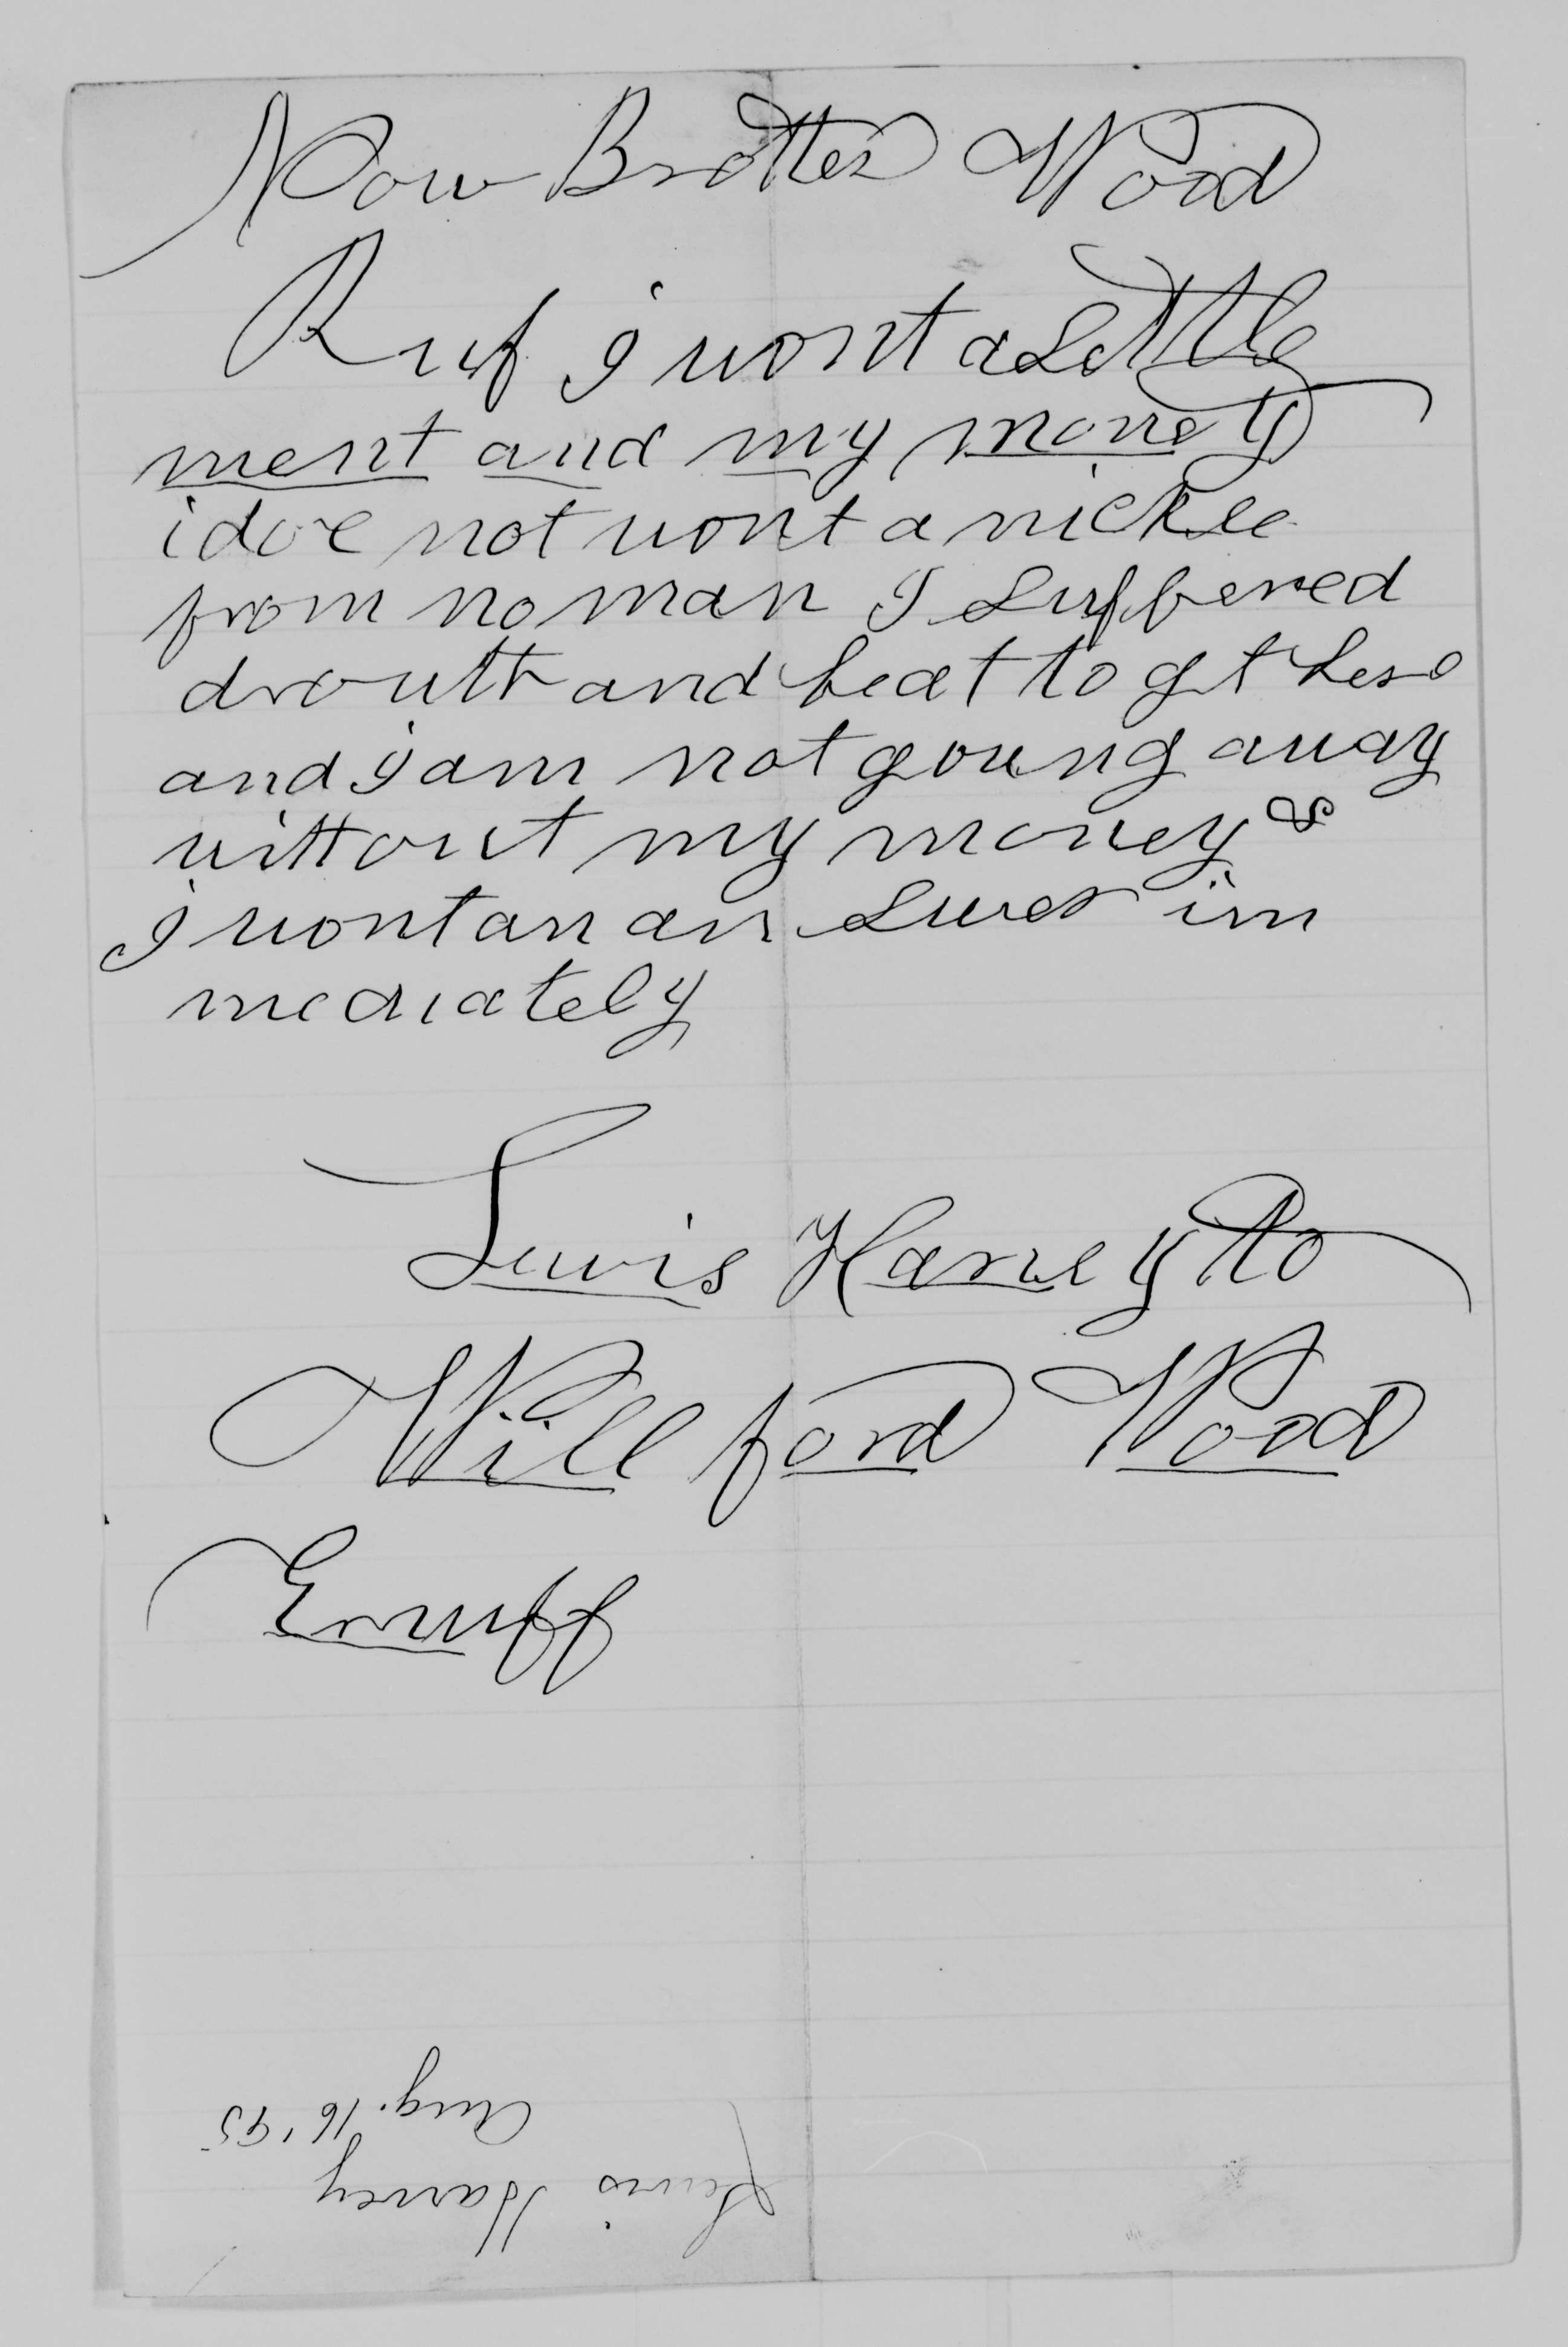 Now Brother Wood
Ruf i wont a settle
ment and my money
i doe not wont a nickle
from no man I suffered
drouth and heat to get hese
and i am not goung away
without my money &
i wont an answer im
mediately
Lewis Harvey to
Willford Wood
Eruff
Lewis Harvey
Aug. 16 '95